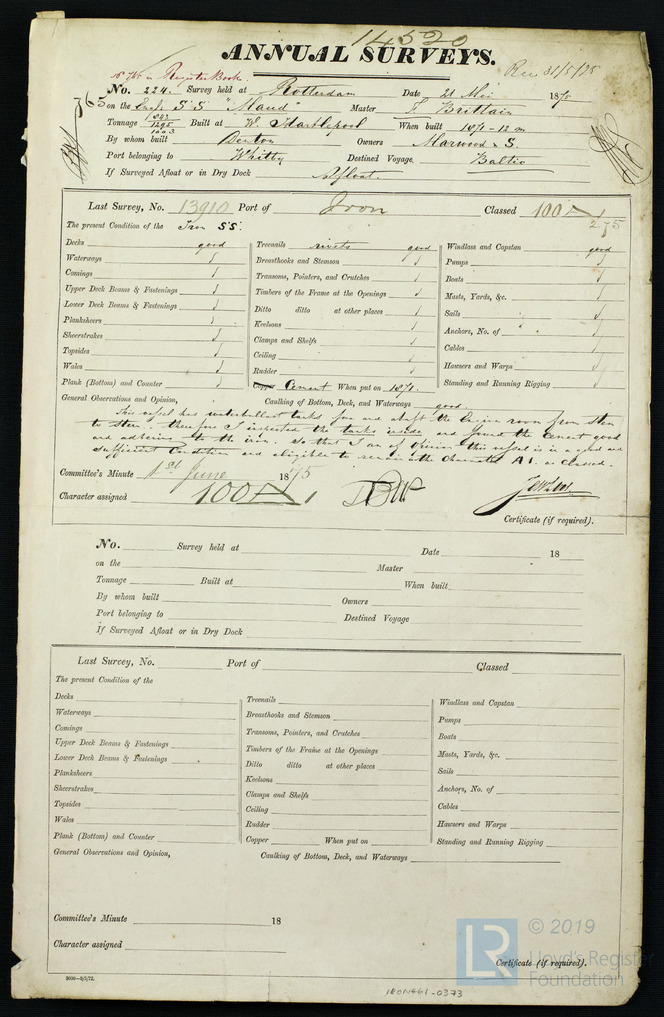 14520
ANNUAL SURVEYS.
Rec 31/5/75
in Register Book.
No. 224. Survey held at Rotterdam Date 21 Mei 187
765 on the S S "Maud" Master T. Brittain
Tonnage 1295 Built at W Hartlepool When built 1871 - 12 m
By whom built Denton Owners Marwood & S.
Port belonging to Whitby Destined Voyage. Baltic
If Surveyed Afloat or in Dry Dock Afloat.
Last Survey, No. 13910 Port of Iron Classed 100 A 1
2 75
The present Condition of the Iron SS.
Decks good Treenails rivets good Windlass and Capstan good
Waterways Breasthooks and Stemson Pumps
Comings Transoms, Pointers, and Crutches Boats
Upper Deck Beams & Fastenings Timbers of the Frame at the Openings Masts, Yards, &c.
Lower Deck Beams & Fastenings Ditto ditto at other places Sails
Planksheers Keelsons Anchors, No. of
Sheerstrakes Clamps and Shelfs Cables
Topsides Ceiling Hawsers and Warps
Wales Rudder Standing and Running Rigging
Plank (Bottom) and Counter Cement When put on 1871.
General Observations and Opinion, Caulking of Bottom, Deck, and Waterways good.
This vessel has waterballast tanks fore and abaft the Engine room from Stem
to Stern. therefore I inspected the tanks inside and found the Cement good
and adhering to the iron. So that I am of opinion this vessel is in a good and
sufficient Condition and eligible to remain the Character A 1. as Classed.
Committee's Minute 1st June 1875
Character assigned 100 A 1
Certificate (if required).
No. Survey held at Date 18
on the Master
Tonnage Built at When built
By whom built Owners
Port belonging to Destined Voyage
If Surveyed Afloat or in Dry Dock
Last Survey, No. Port of Classed
The present Condition of the
Decks Treenails Windlass and Capstan
Waterways Breasthooks and Stemson Pumps
Comings Transoms, Pointers, and Crutches Boats
Upper Deck Beams & Fastenings Timbers of the Frame at the Openings Masts, Yards, &c.
Lower Deck Beams & Fastenings Ditto ditto at other places Sails
Planksheers Keelsons Anchors, No. of
Sheerstrakes Clamps and Shelfs Cables
Topsides Ceiling Hawsers and Warps
Wales Rudder Standing and Running Rigging
Plank (Bottom) and Counter Copper When put on
General Observations and Opinion, Caulking of Bottom, Deck, and Waterways
Committee's Minute 18
Character assigned
Certificate (if required).
© 2019
LR Lloyd's Register
Foundation
3000—3/5/72.
IRON461-0373